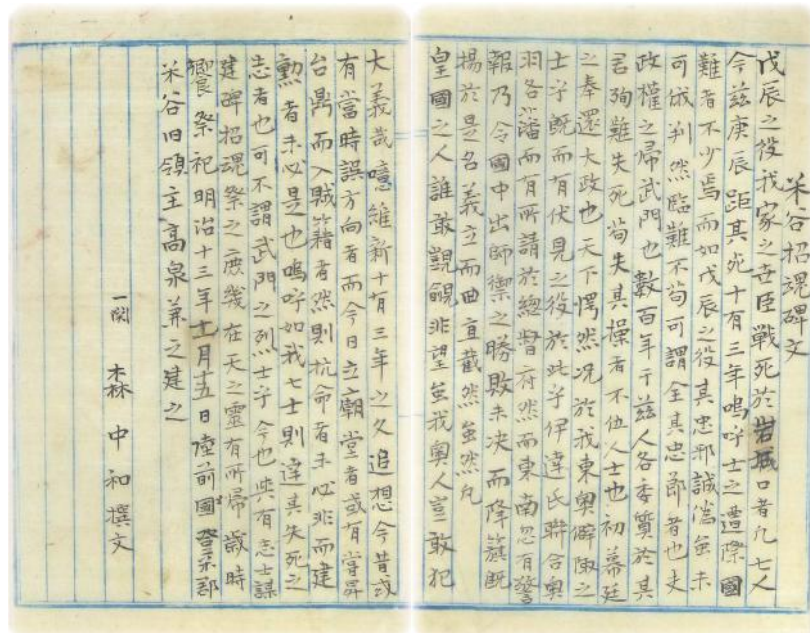 米谷招魂碑文
戊辰之役我家之世臣戦死於岩城口者凡七人
今茲庚辰距其死十有三年嗚呼士之遭際國
難者不少焉而如戊辰之役其忠邪誠偽無未
可俄判然臨難不苟可謂全其忠節者也夫
政權之帰武門也數百年于茲人各委質於其
君殉難失死苟失其操者不伍人士也初幕廷
之奉還大政也天下愕然况於我東奥僻陬之
士乎既而有伏見之役於此乎伊達氏聯合奥
羽各藩而有所請於總督府然而東南忽有警
報乃令國中出師禦之勝敗未决而降籏既
揚於是名義立而曲直截然無然凡
皇國之人誰敢覬覦非望無我奥人豈敢犯
大義哉噫維新十有三年之久追想今昔或
有當時誤方向者而今日立廟堂者或有嘗昇
台鼎而入賊籍者然則抗命者未必非而建
勲者未必是也嗚呼如我七士則達其失死之
志者也可不謂武門之烈士乎今也與有志士謀
建碑招魂祭之庶幾在天之靈有所帰歳時
饗祭祀明治十三年十一月十五日陸前國登米郡
米谷旧領主高泉兼之建之
一関 森中和撰文